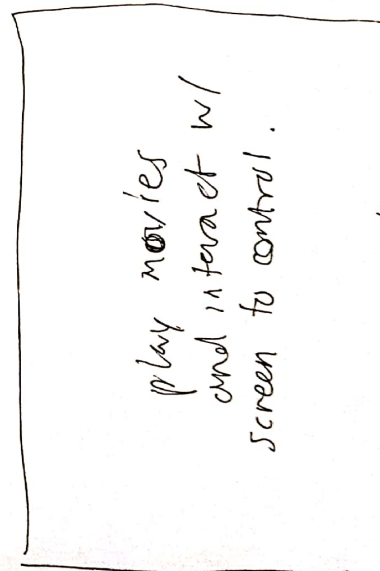 play movies
and interact w/
screen to control.